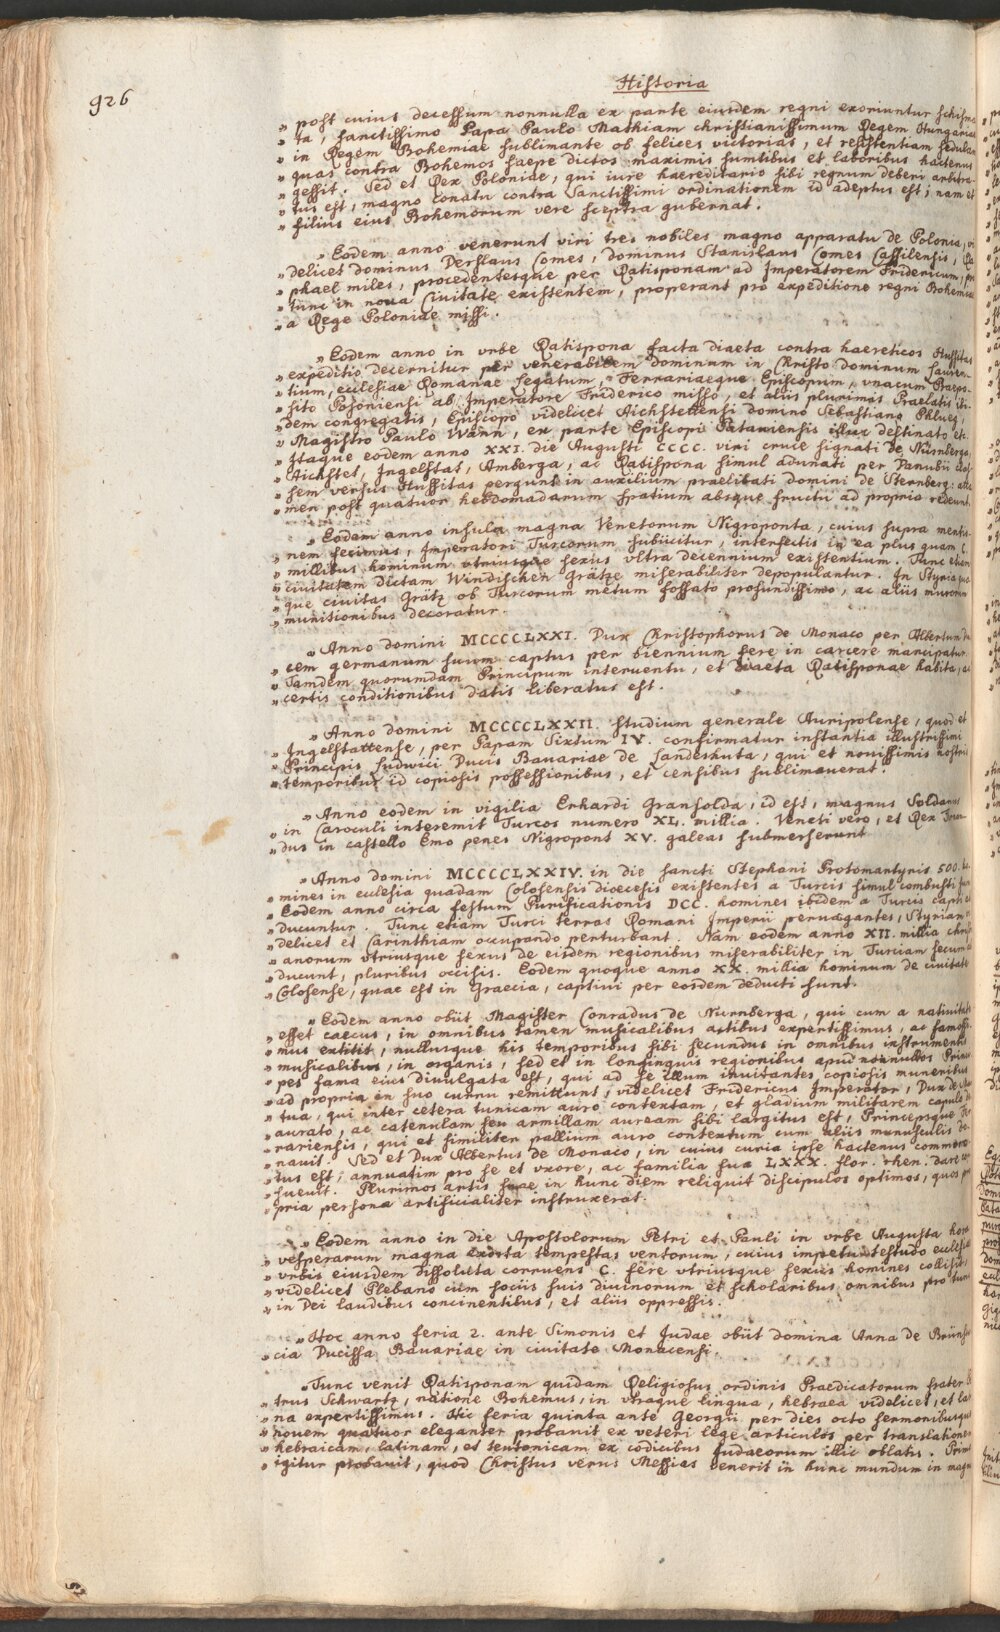 926
Historia
„ post cuius decessum nonnulla ex parte eiusdem regni exoriuntur schisma-
„ ta, sanctissimo Papa Paulo Mathiam christianissimum Regem Hungariae
„ in Regem Bohemiae sublimante ob felices victorias, et resistentiam sedulam
„ quas contra Bohemos saepe dictos maximis sumtibus et laboribus hactenus
„ gessit. Sed et Rex Poloniae, qui iure haereditario sibi regnum deberi arbitra-
„ tus est, magno conatu contra Sanctissimi ordinationem id adeptus est; nam et
„ filius eius Bohemorum vere sceptra gubernat.
„ Eodem anno venerunt viri tres nobiles magno apparatu de Polonia, vi
„ delicet dominus Derslaus Comes, dominus Stanislaus Comes Cassilensis, Ra
„ phael miles, procedentesque per Ratisponam ad Imperatorem Fridericum,
„ tunc in noua Civitate existentem, properant pro expeditione regni Bohemiae
„ a Rege Poloniae missi.
„ Eodem anno in vrbe Ratispona facta diaeta contra haereticos Hussitas
„ expeditio decernitur per venerabilem dominum in Christo dominum Lauren-
„ tium, ecclesiae Romanae Legatum, Ferrariaeque Episcopum, vnacum Praepo-
„ sito Posoniensi ab Imperatore Friderico misso, et aliis plurimis Praelatis ibi-
„ dem congregatis, Episcopo videlicet Aichstettensi domino Sebastiano Phlueg,
„ Magistro Paulo Wann, ex parte Episcopi Patauiensis illuc destinato etc.
„ Itaque eodem anno XXI. die Augusti CCCC. viri cruce signati de Nürnberga,
„ Aichstet, Ingelstat, Amberga, ac Ratispona simul adunati per Danubii clas-
„ sem versus Hussitas pergunt in auxilium praelibati domini de Sternberg: atta
„ men post quatuor hebdomadarum spatium absque fructu ad propria redeunt.
„ Eodem anno insula magna Venetorum Nigroponta, cuius supra mentio-
„ nem fecimus, Imperatori Turcorum subiicitur, interfectis in ea plus quam C.
„ millibus hominum vtriusque sexus vltra decennium existentium. Tunc etiam
„ civitatem dictam Windischen Grätze miserabiliter depopulantur. In Styria quo
„ que civitas Grätz ob Turcorum metum fossato profundissimo, ac aliis murorum
„ munitionibus decoratur.
„ Anno domini MCCCCLXXI. Dux Christophorus de Monaco per Albertum Du
„ cem germanum suum captus per biennium fere in carcere mancipatur.
„ Tamdem quorumdam Principum interuentu, et diaeta Ratisponae habita, ac
„ certis conditionibus datis liberatus est.
„ Anno domini MCCCCLXXII. studium generale Auripolense, quod et
„ Ingelstattense, per Papam Sixtum IV. confirmatur instantia illustrissimi
„ Principis Ludwici Ducis Bauariae de Landeshuta, qui et nouissimis nostris
„ temporibus id copiosis possessionibus, et censibus sublimauerat.
„ Anno eodem in vigilia Erhardi Gransolda, id est, magnus Soldanus
„ in Caroculi interemit Turcos numero XL. millia. Veneti vero, et Rex
„ dus in castello Emo penes Nigropont XV. galeas submerserunt
„ Anno domini MCCCCLXXIV. in die sancti Stephani Protomartyris 500. ho
„ mines in ecclesia quadam Colosensis dioecesis existentes a Turcis simul combusti
„ Eodem anno circa festum Purificationis DCC. homines ibidem a Turcis capti ab
„ ducuntur. Tunc etiam Turci terras Romani Imperii peruagantes, Styriam vi
„ delicet et Carinthiam occupando perturbant. Nam eodem anno XII. millia christi
„ anorum vtriusque sexus de eisdem regionibus miserabiliter in Turciam secum
„ ducunt, pluribus occisis. Eodem quoque anno XX. millia hominum de civitate
„ Colosense, quae est in Graecia, captiui per eosdem deducti sunt.
„ Eodem anno obiit Magister Conradus de Nurnberga, qui cum a natiuitate
„ esset caecus, in omnibus tamen musicalibus artibus expertissimus, ac famosissi
„ mus extitit, nullusque his temporibus sibi secundus in omnibus instrumentis
„ musicalibus, in organis, sed et in longinquis regionibus apud nonnullos Princi
„ pes fama eius diuulgata est, qui ad se illum inuitantes copiosis muneribus
„ ad propria in suo curru remittunt, videlicet Fridericus Imperator, Dux de Man
„ tua, qui inter cetera tunicam auro contextam, et gladium militarem capulo de
„ aurato, ac catenulam seu armillam auream sibi largitus est, Princepsque Fer
„ rariensis, qui et similiter pallium auro contextum cum aliis munusculis do-
„ nauit. Sed et Dux Albertus de Monaco, in cuius curia ipse hactenus commora-
„ tus est, annuatim pro se et vxore, ac familia sua LXXX. flor. rhen. dare con
„ sueuit. Plurimos artis suae in hunc diem reliquit discipulos optimos, quos pro
„ pria persona artificialiter instruxerat.
„ Eodem anno in die Apostolorum Petri et Pauli in vrbe Augusta hora
„ vesperarum magna exorta tempestas ventorum, cuius impetu testudo ecclesiae
„ vrbis eiusdem dissoluta corruens C. fere vtriusque sexus homines collisit,
„ videlicet Plebano cum sociis suis diuinorum et scholaribus omnibus pro tunc
„ in Dei laudibus concinentibus, et aliis oppressis.
„ Hoc anno feria 2. ante Simonis et Judae obiit domina Anna de Brüns
„ cia Ducissa Bauariae in civitate Monacensi.
„ Tunc venit Ratisponam quidam Religiosus ordinis Praedicatorum frater Pe
„ trus Schwartz, natione Bohemus, in vtraque lingua, hebraea videlicet, et lati
„ na expertissimus. Hic feria quinta ante Georgii per dies octo sermonibusque
„ novem quatuor eleganter probauit ex veteri lege articulos per translationem
„ hebraicam, latinam, et teutonicam ex codicibus Judaeorum illic oblatis. Primo
„ igitur probauit, quod Christus verus Messias venerit in hunc mundum in magna